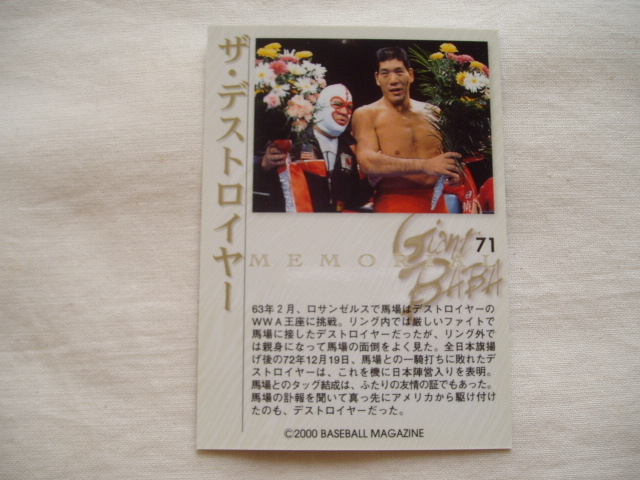 ザ・デストロイヤー
71
Giant
BABA
MEMORIAL
63年2月、ロサンゼルスで馬場はデストロイヤーの
WWA王座に挑戦。リング内では厳しいファイトで
馬場に接したデストロイヤーだったが、リング外で
は親身になって馬場の面倒をよく見た。全日本旗揚
げ後の72年12月19日、馬場との一騎打ちに敗れたデ
ストロイヤーは、これを機に日本陣営入りを表明。
馬場とのタッグ結成は、ふたりの友情の証でもあった。
馬場の訃報を聞いて真っ先にアメリカから駆け付け
たのも、デストロイヤーだった。
©2000 BASEBALL MAGAZINE